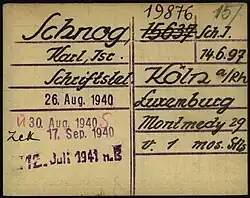 19876. 15/
Schnog, 15637 Sch.J.
Karl, Isr. 14.6.97
Schriftstel. Köln a/Rh
26. Aug. 1940 Luxemburg
30. Aug. 1940 Montmedy 29
Zek 17. Sep. 1940 v. 1 mos. Sts
12. Juli 1941 n.B